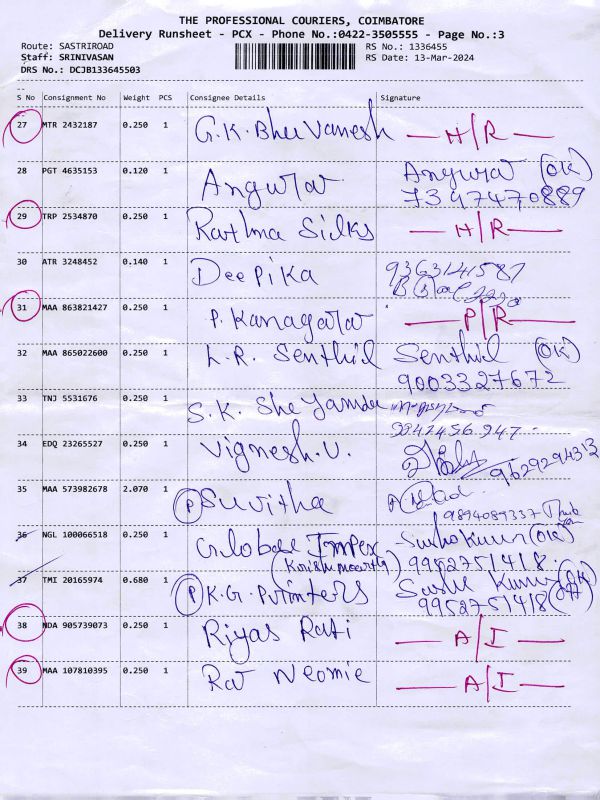 THE PROFESSIONAL COURIERS, COIMBATORE
Delivery Runsheet - PCX - Phone No.:0422-3505555 - Page No.:3
Route: SASTRIROAD RS No.: 1336455
Staff: SRINIVASAN RS Date: 13-Mar-2024
DRS No.: DCJB133645503
S No Consignment No Weight PCS Consignee Details Signature
27 MTR 2432187 0.250 1 G.K. Bhuvanesh H/R
28 PGT 4635153 0.120 1 Angura Angura (OK)
7397470889
29 TRP 2534870 0.250 1 Rathna Silks H/R
30 ATR 3248452 0.140 1 Deepika 9363141587
31 MAA 863821427 0.250 1 P. Kanagara P/R
32 MAA 865022600 0.250 1 L.R. Senthil Senthil (OK)
9003327672
33 TNJ 5531676 0.250 1 S.K. 
9842456947
34 EDQ 23265527 0.250 1 Vignesh.U. 9629294313
35 MAA 573982678 2.070 1 (P) Suvitha
9894089337
36 NGL 100066518 0.250 1 Globase Impex (OK)
(Krishnamoorthy) 9952751418
37 TMI 20165974 0.680 1 (P) K.G. Printers
9952751418
38 NDA 905739073 0.250 1 Riyas Rafi A/I
39 MAA 107810395 0.250 1 Neomie A/I